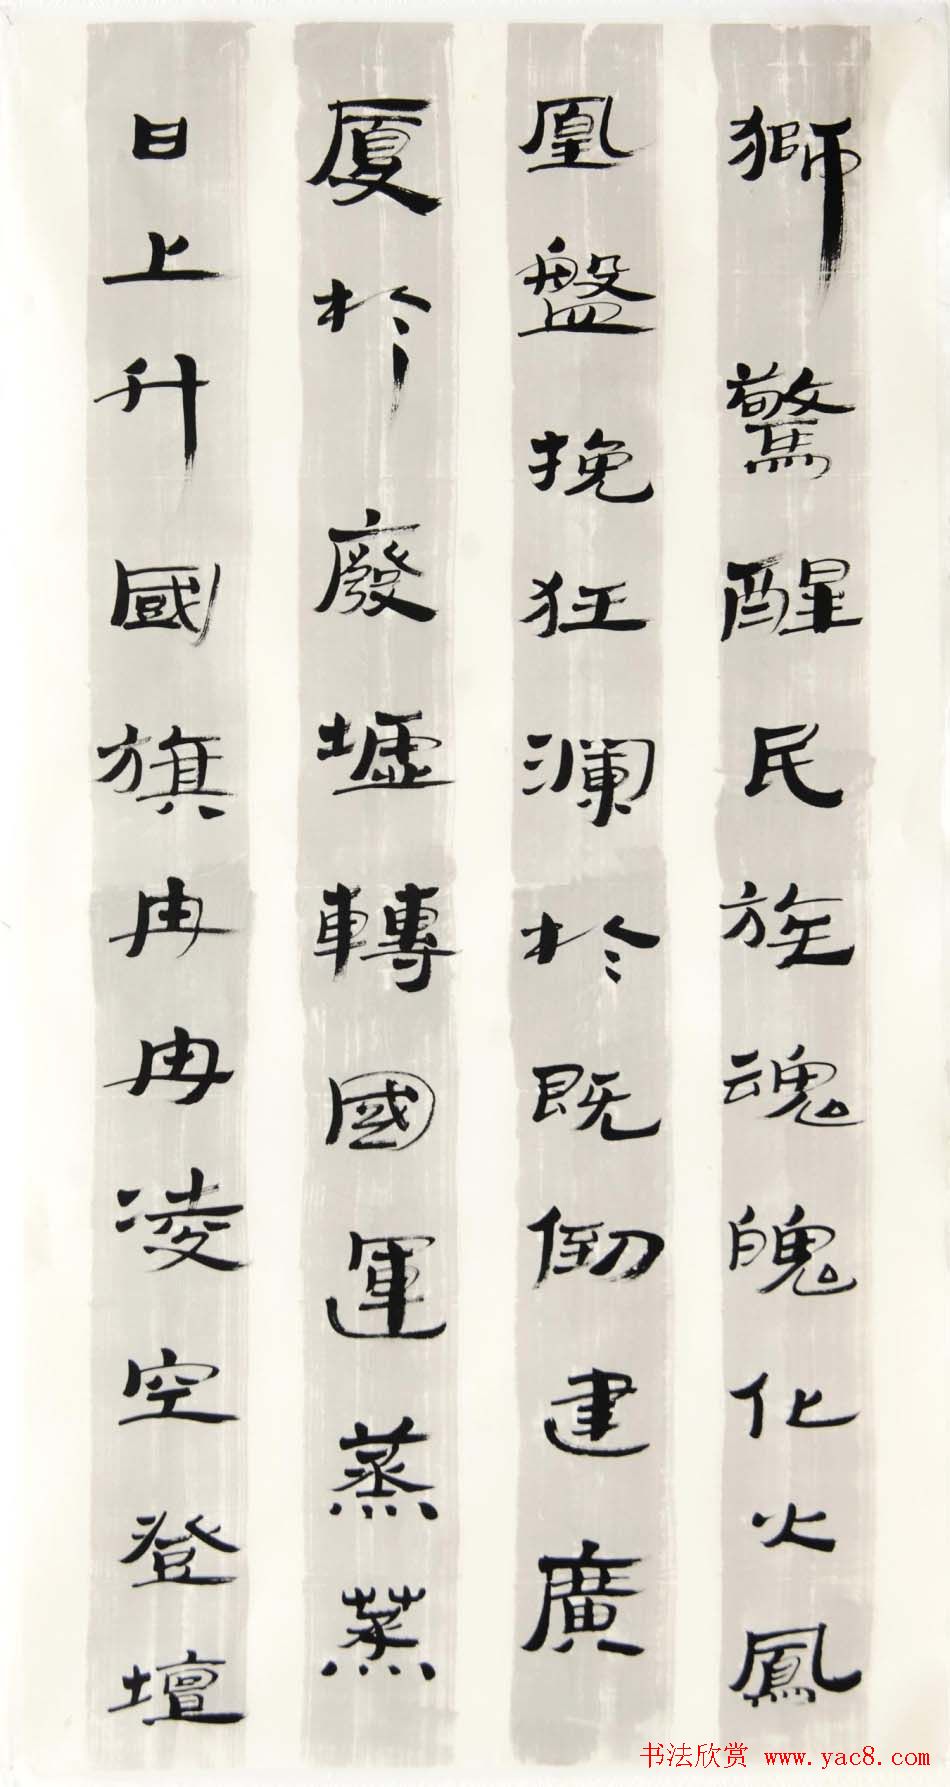 獅驚醒民族魂魄化火鳳
凰盤挽狂澜於既倒建廣
廈於廢墟轉國運蒸蒸
日上升國旗冉冉凌空登壇
书法欣赏 www.yac8.com